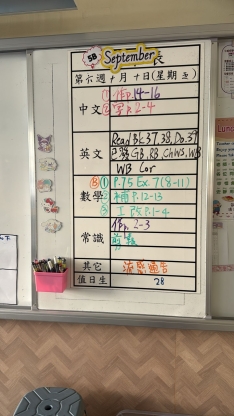 5B September 長
第六週十月十日(星期五)
中文 ① 作p.14-16
② 寫p.2-4
英文 Read BK 37, 38, Do. 39
GB, RB, Ch WS, WB
WB Cor
數學 ⑧ ① P.75 Ex. 7 (8-11)
② 補 P.12-13
③ 工 P5 P.1-4
常識 作p. 2-3
剪報
其它 流感通告
值日生 28